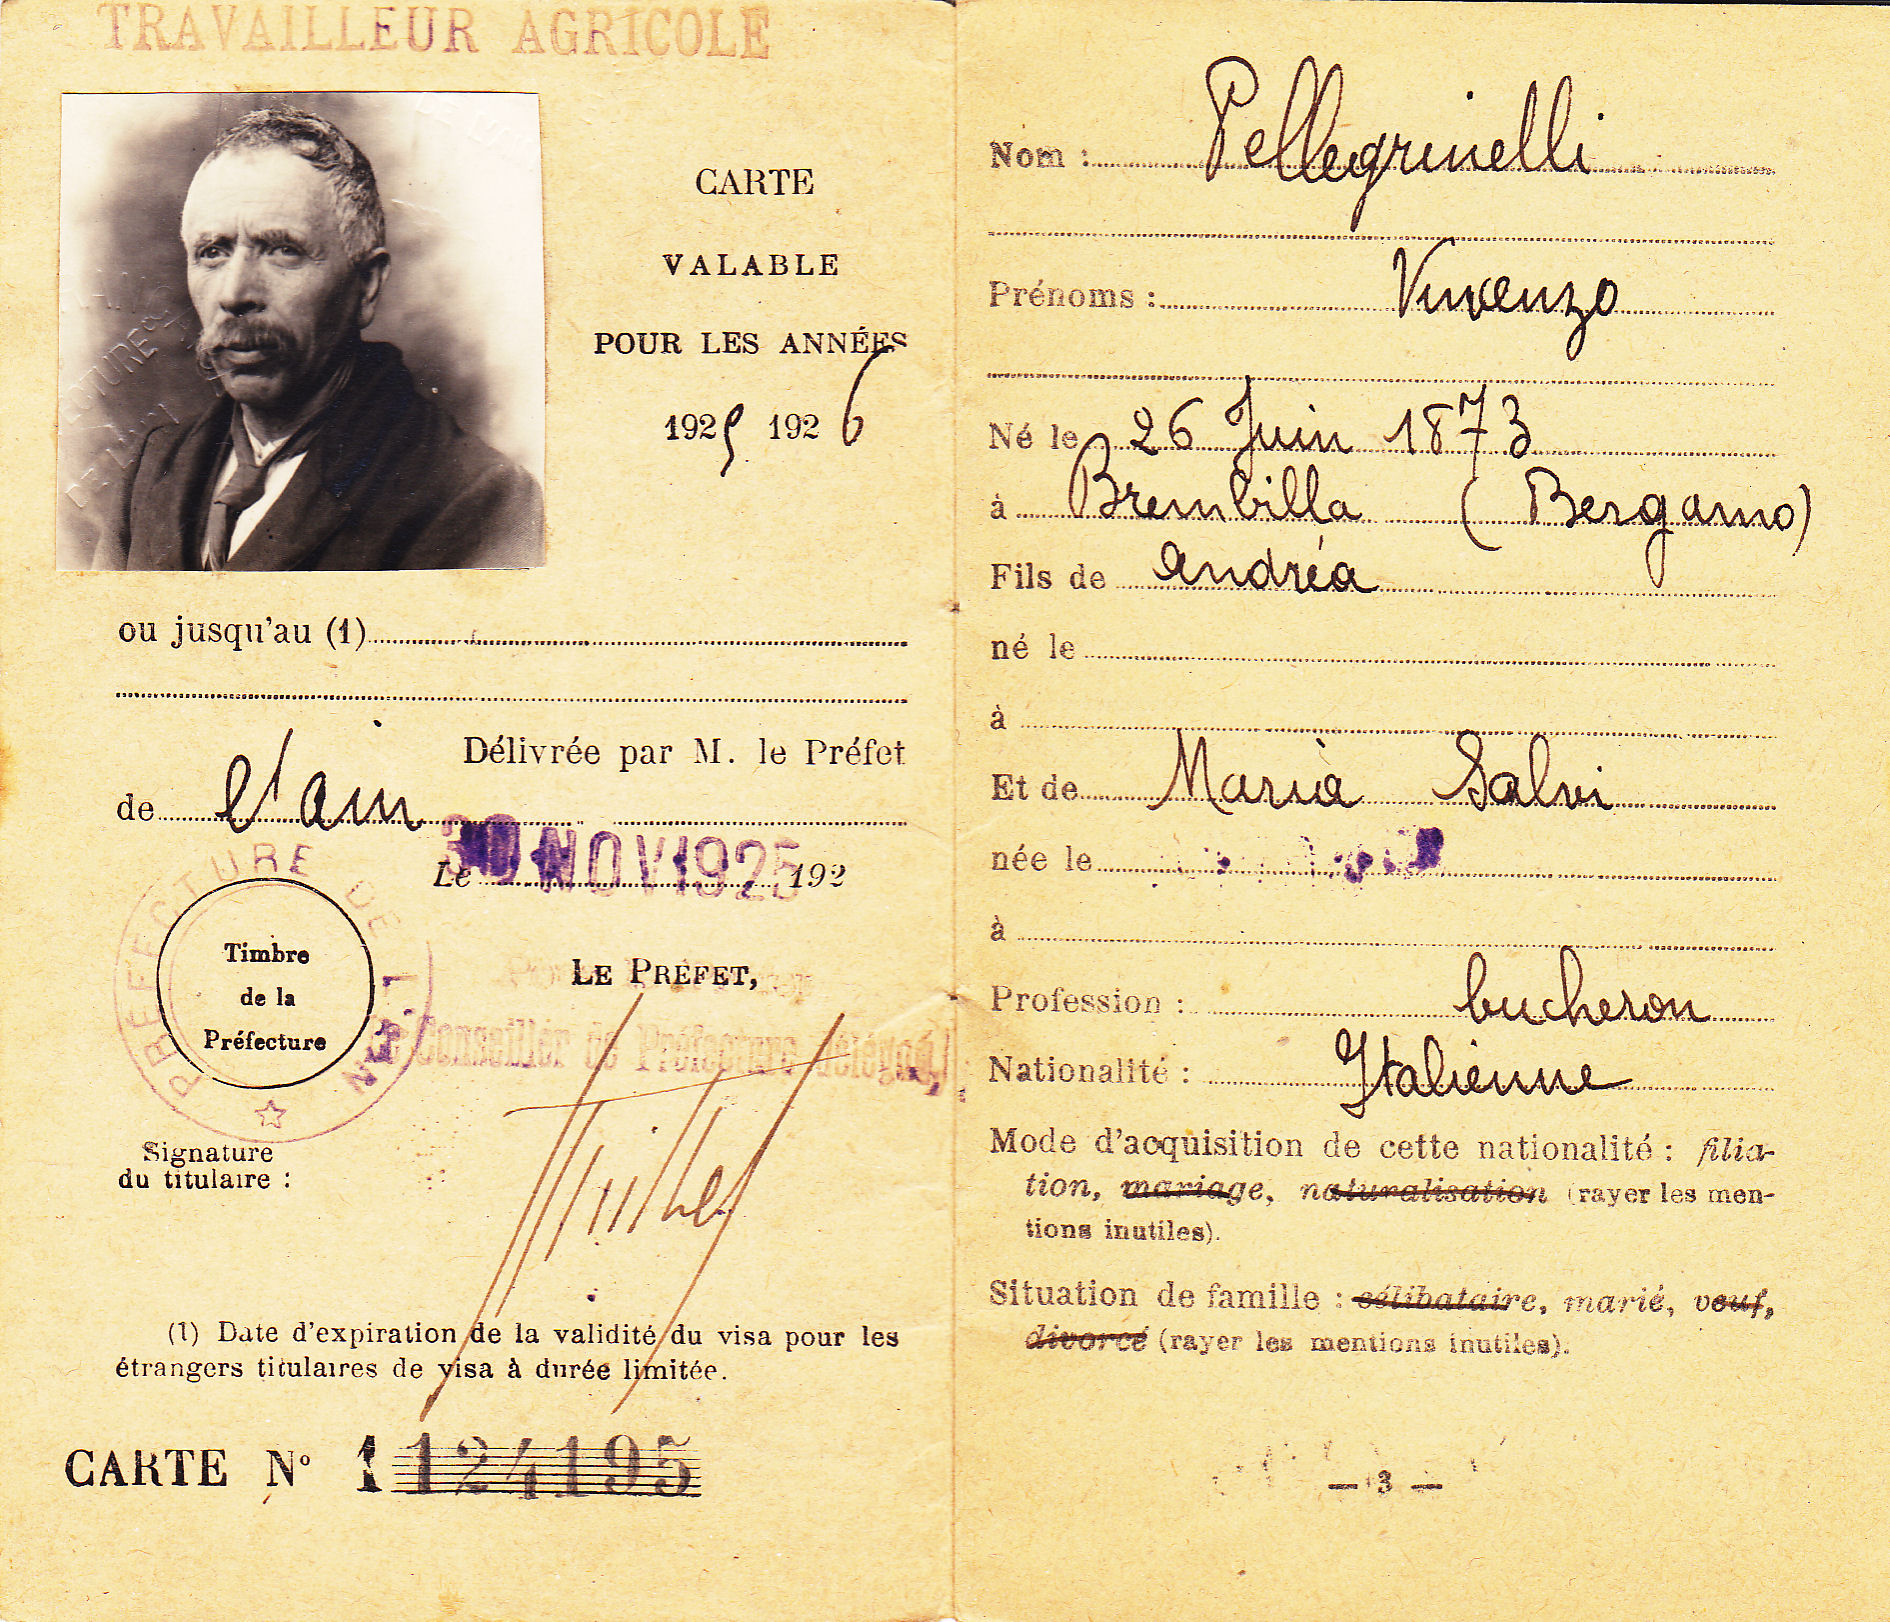 TRAVAILLEUR AGRICOLE
CARTE
VALABLE
POUR LES ANNÉES
1925 1926
ou jusqu'au (1)
Délivrée par M. le Préfet
de l'ain
Le 30 NOV 1925 192
PRÉFECTURE DE L'AIN
Timbre
de la
Préfecture
LE PRÉFET,
Le Conseiller de Préfecture délégué,
Signature
du titulaire :
(1) Date d'expiration de la validité du visa pour les
étrangers titulaires de visa à durée limitée.
CARTE N° 1 124195
Nom : Pellegrinelli
Prénoms : Vincenzo
Né le 26 Juin 1873
à Brembilla (Bergamo)
Fils de Andréa
né le
à
Et de Maria Salvi
née le
à
Profession : bucheron
Nationalité : Italienne
Mode d'acquisition de cette nationalité : filia-
tion, mariage, naturalisation (rayer les men-
tions inutiles).
Situation de famille : célibataire, marié, veuf,
divorcé (rayer les mentions inutiles).
— 3 —